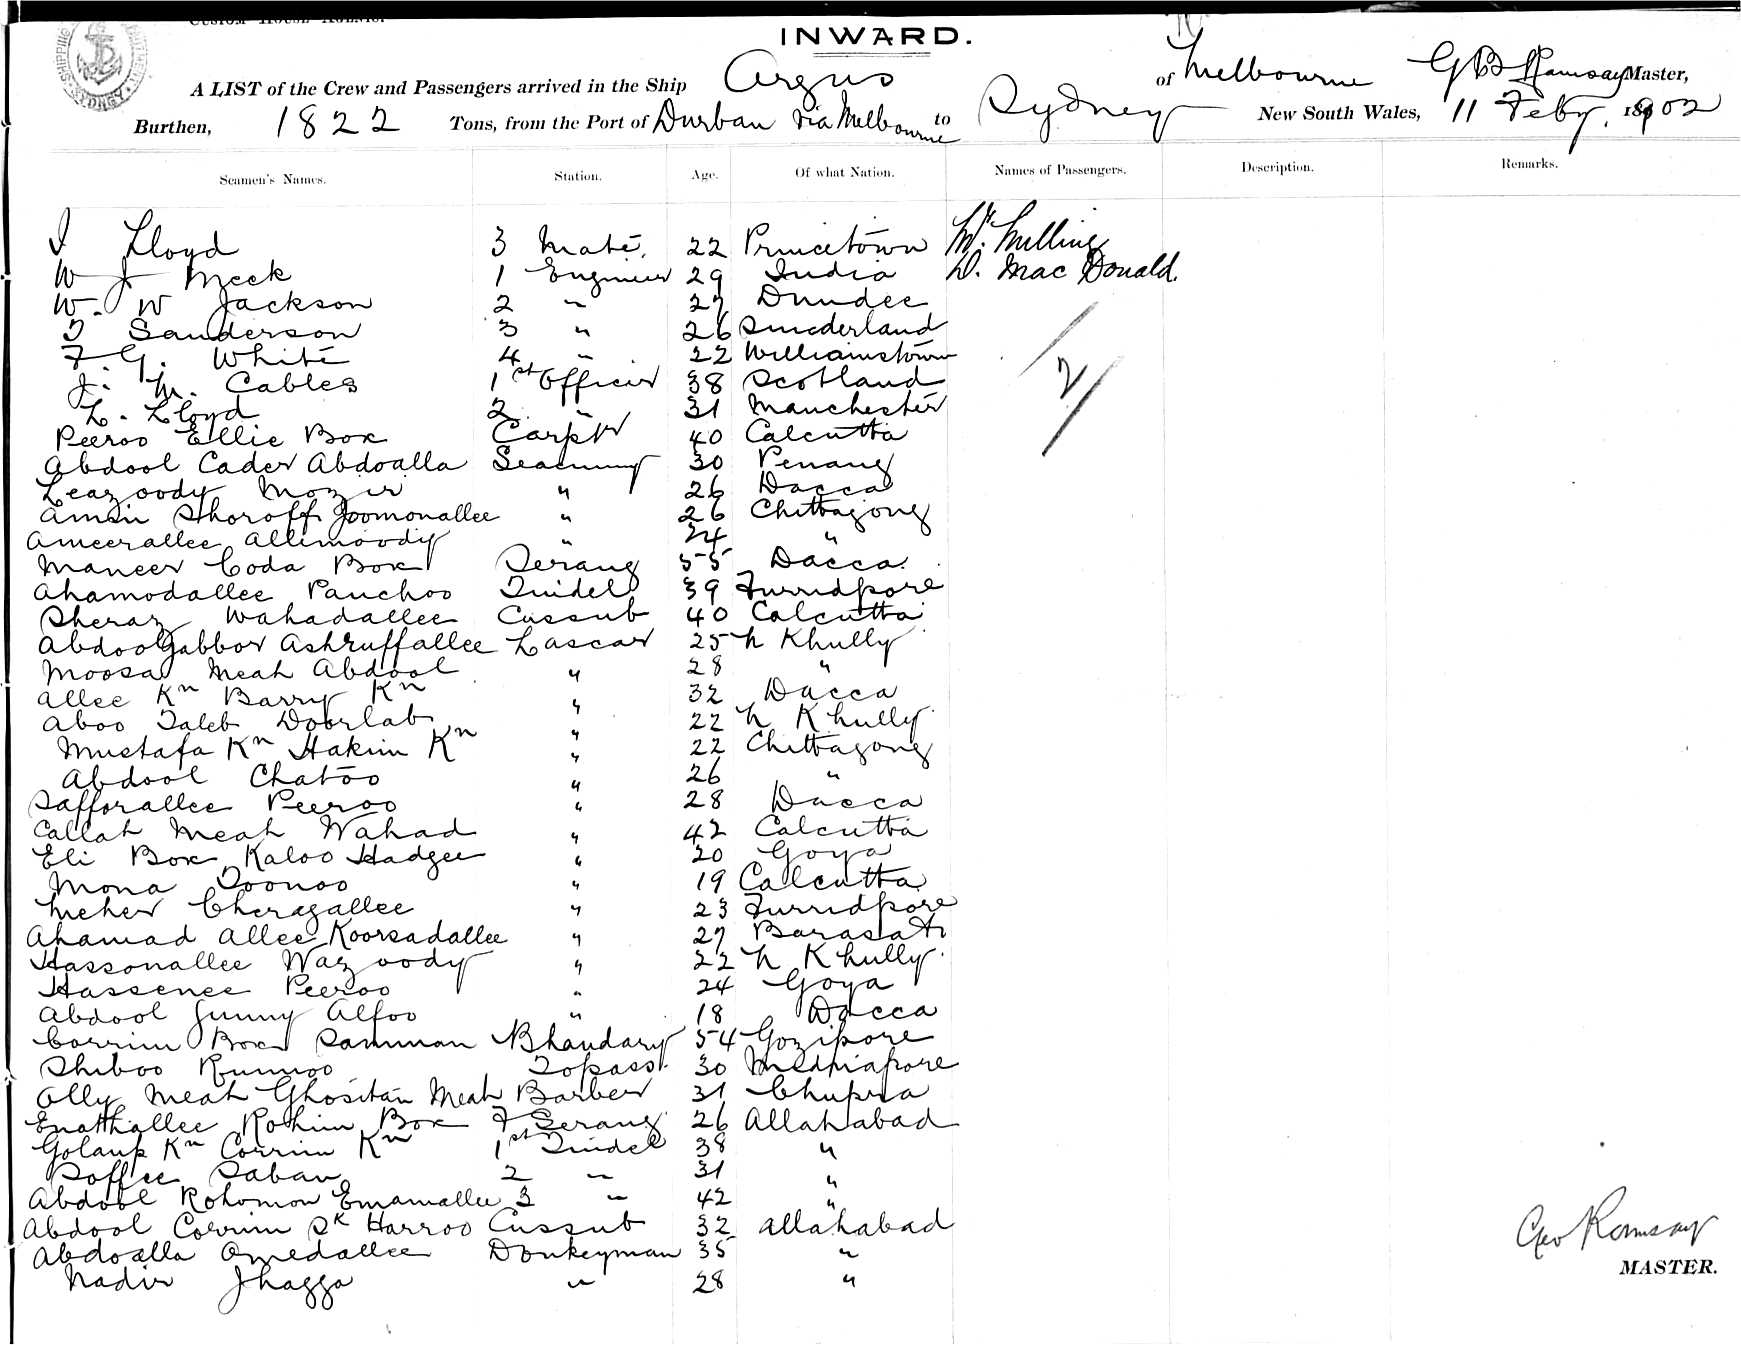 INWARD.
A LIST of the Crew and Passengers arrived in the Ship Argus of Melbourne G B Ramsay Master,
Burthen, 1822 Tons, from the Port of Durban via Melbourne to Sydney New South Wales, 11 Feby. 1902
Seamen's Names. Station. Age. Of what Nation. Names of Passengers. Description. Remarks.
I Lloyd 3 Mate. 22 Princetown Mr. Milling
W J Meek 1 Engineer 29 India D. Mac Donald.
W. W Jackson 2 " 27 Dundee
T Sanderson 3 " 26 Sunderland
F. G. White 4 " 22 Williamstown
J. M. Cables 1st Officer 38 Scotland
L. Lloyd 2 " 31 Manchester
2
Peeroo Ellie Box Carptr 40 Calcutta
Abdool Cader Abdoalla Seacunny 30 Penang
Leazoody Mozir " 26 Dacca
Amin Shoroff Joomonallee " 26 Chittagong
Ameerallee Allimoody " 24 "
Maneer Coda Box Serang 55 Dacca.
Ahamodallee Panchoo Tindel 39 Furridpore
Sheraz Wahadallee Cussub 40 Calcutta
Abdool Gabbor Ashruffallee Lascar 25 N Khully
Moosa Meah Abdool " 28 "
Allee Kn Barry Kn " 32 Dacca
Aboo Taleb Doorlab " 22 N Khully
Mustafa Kn Hakim Kn " 22 Chittagong
Abdool Chatoo " 26 "
Safforallee Peeroo " 28 Dacca
Callah Meah Wahad " 42 Calcutta
Eli Box Kaloo Hadgee " 20 Goya
Mona Toonoo " 19 Calcutta
Meher Cheragallee " 23 Furridpore
Ahamad Allee Koorsadallee " 27 Barasat
Hassonallee Wazoody " 22 N Khully.
Hassenee Peeroo " 24 Goya
Abdool Gunny Alfoo " 18 Dacca
Corrim Box Samman Bhandary 54 Gozipore
Shiboo Rumoo Topass. 30 Midniapore
Olly Meah Ghositan Meah Barber 31 Chupra
Enathallee Rohim Box F Serang 26 Allahabad
Golaup Kn Corrim Kn 1st Tindel 38 "
Soffee Saban 2 " 31 "
Abdool Rohomon Emamallee 3 " 42 "
Abdool Corrim Sk Harroo Cussub 32 Allahabad
Abdoalla Omedallee Donkeyman 35 "
Nadir Jhagga " 28 "
Geo Ramsay
MASTER.